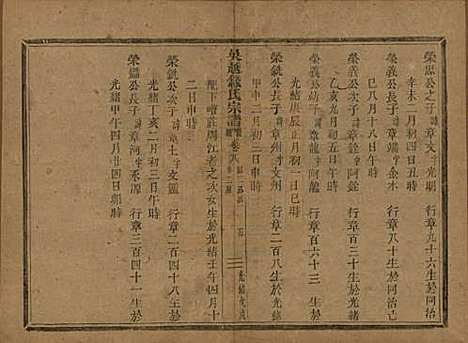 榮溫公之子諱章文字光朝 行章九十六生於同治
辛未二月初四日丑時
榮義公長子諱章端字金水 行章八十生於同治己
巳八月十八日午時
榮義公次子諱章銓字阿銓 行章百三十生於光緒
乙亥九月初五日午時
榮義公幼子諱章龍字阿龍 行章百六十三 生於
光緒庚辰正月初一日巳時
榮銑公長子諱章州字文州 行章二百八生於光緒
甲申二月初三日申時
吳越錢氏宗譜 卷八
配下嘈莊周江者之次女生於光緒壬午四月十
七日申時
榮銑公次子諱章土字文鑑 行章二百四十八生於
光緒丁亥二月初三日午時
榮銑公長子諱章河字承三 行章三百四十一生於
光緒甲午四月廿四日午時